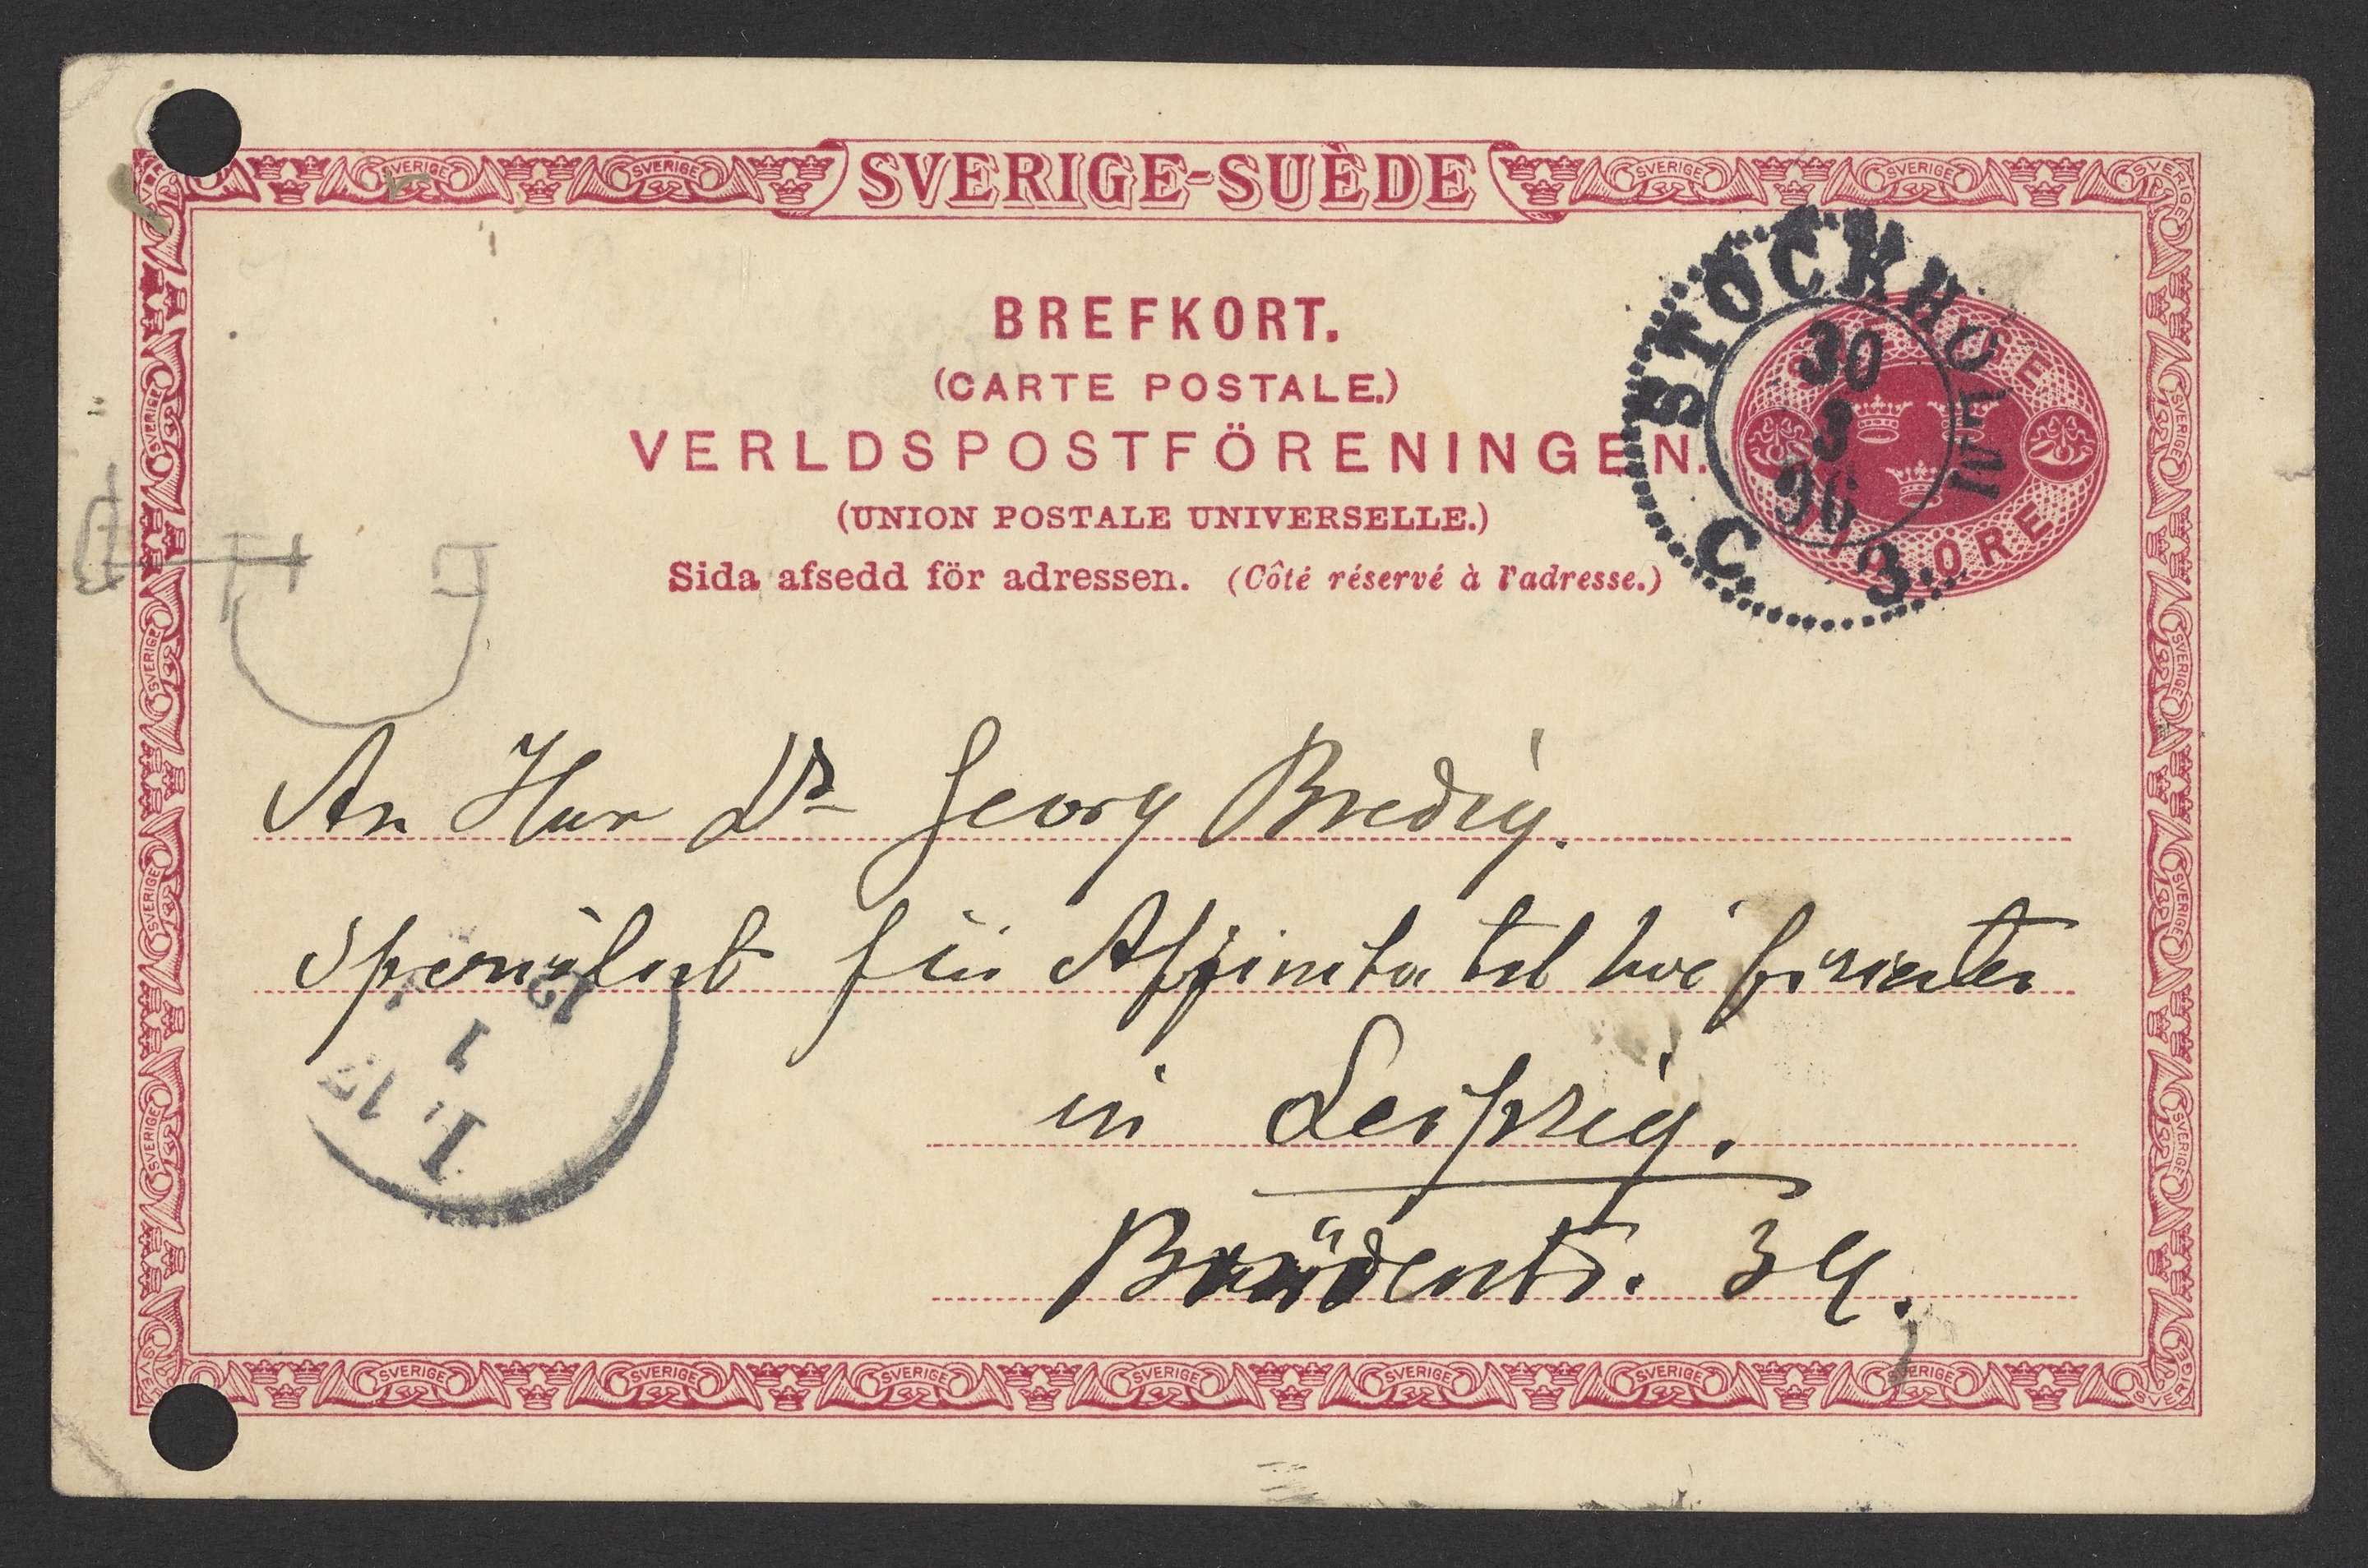 SVERIGE-SUÈDE
BREFKORT.
(CARTE POSTALE.)
VERLDSPOSTFÖRENINGEN.
(UNION POSTALE UNIVERSELLE.)
Sida afsedd för adressen. (Côté réservé à l'adresse.)
STOCKHOLM
30
3
96
C. 3.
ÖRE
An Herr Dr Georg Bredig.
Spezialist für Affinitäts
in Leipzig.
34.